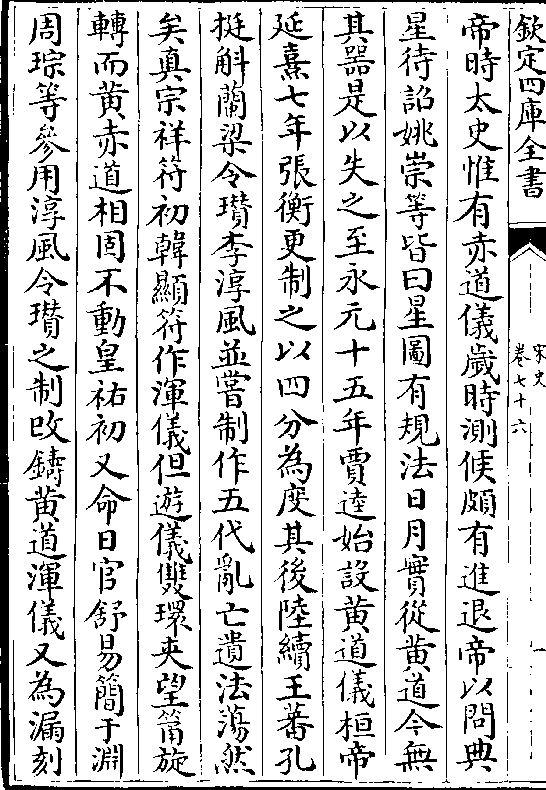 欽定四庫全書
宋史
卷七十六
一
帝時太史惟有赤道儀歲時測候頗有進退帝以問典
星待詔姚崇等皆曰星圖有規法日月實從黄道今無
其器是以失之至永元十五年賈逵始設黄道儀桓帝
延熹七年張衡更制之以四分為度其後陸續王蕃孔
挺斛蘭梁令瓚李淳風並嘗制作五代亂亡遺法蕩然
矣真宗祥符初韓顯符作渾儀但遊儀雙環夾望筩旋
轉而黄赤道相固不動皇祐初又命日官舒易簡于淵
周琮等參用淳風令瓚之制改鑄黄道渾儀又為漏刻